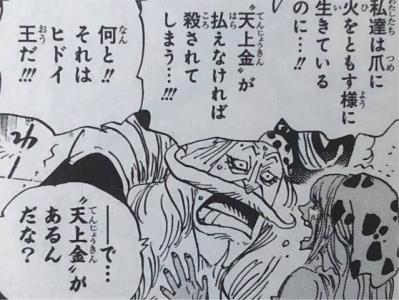 私達は爪に
火をともす様に
生きている
のに…!!
“天上金”が
払えなければ
殺されて
しまう…!!!
何と!!
それは
ヒドイ
王だ!!!
──で…
“天上金”が
あるん
だな?